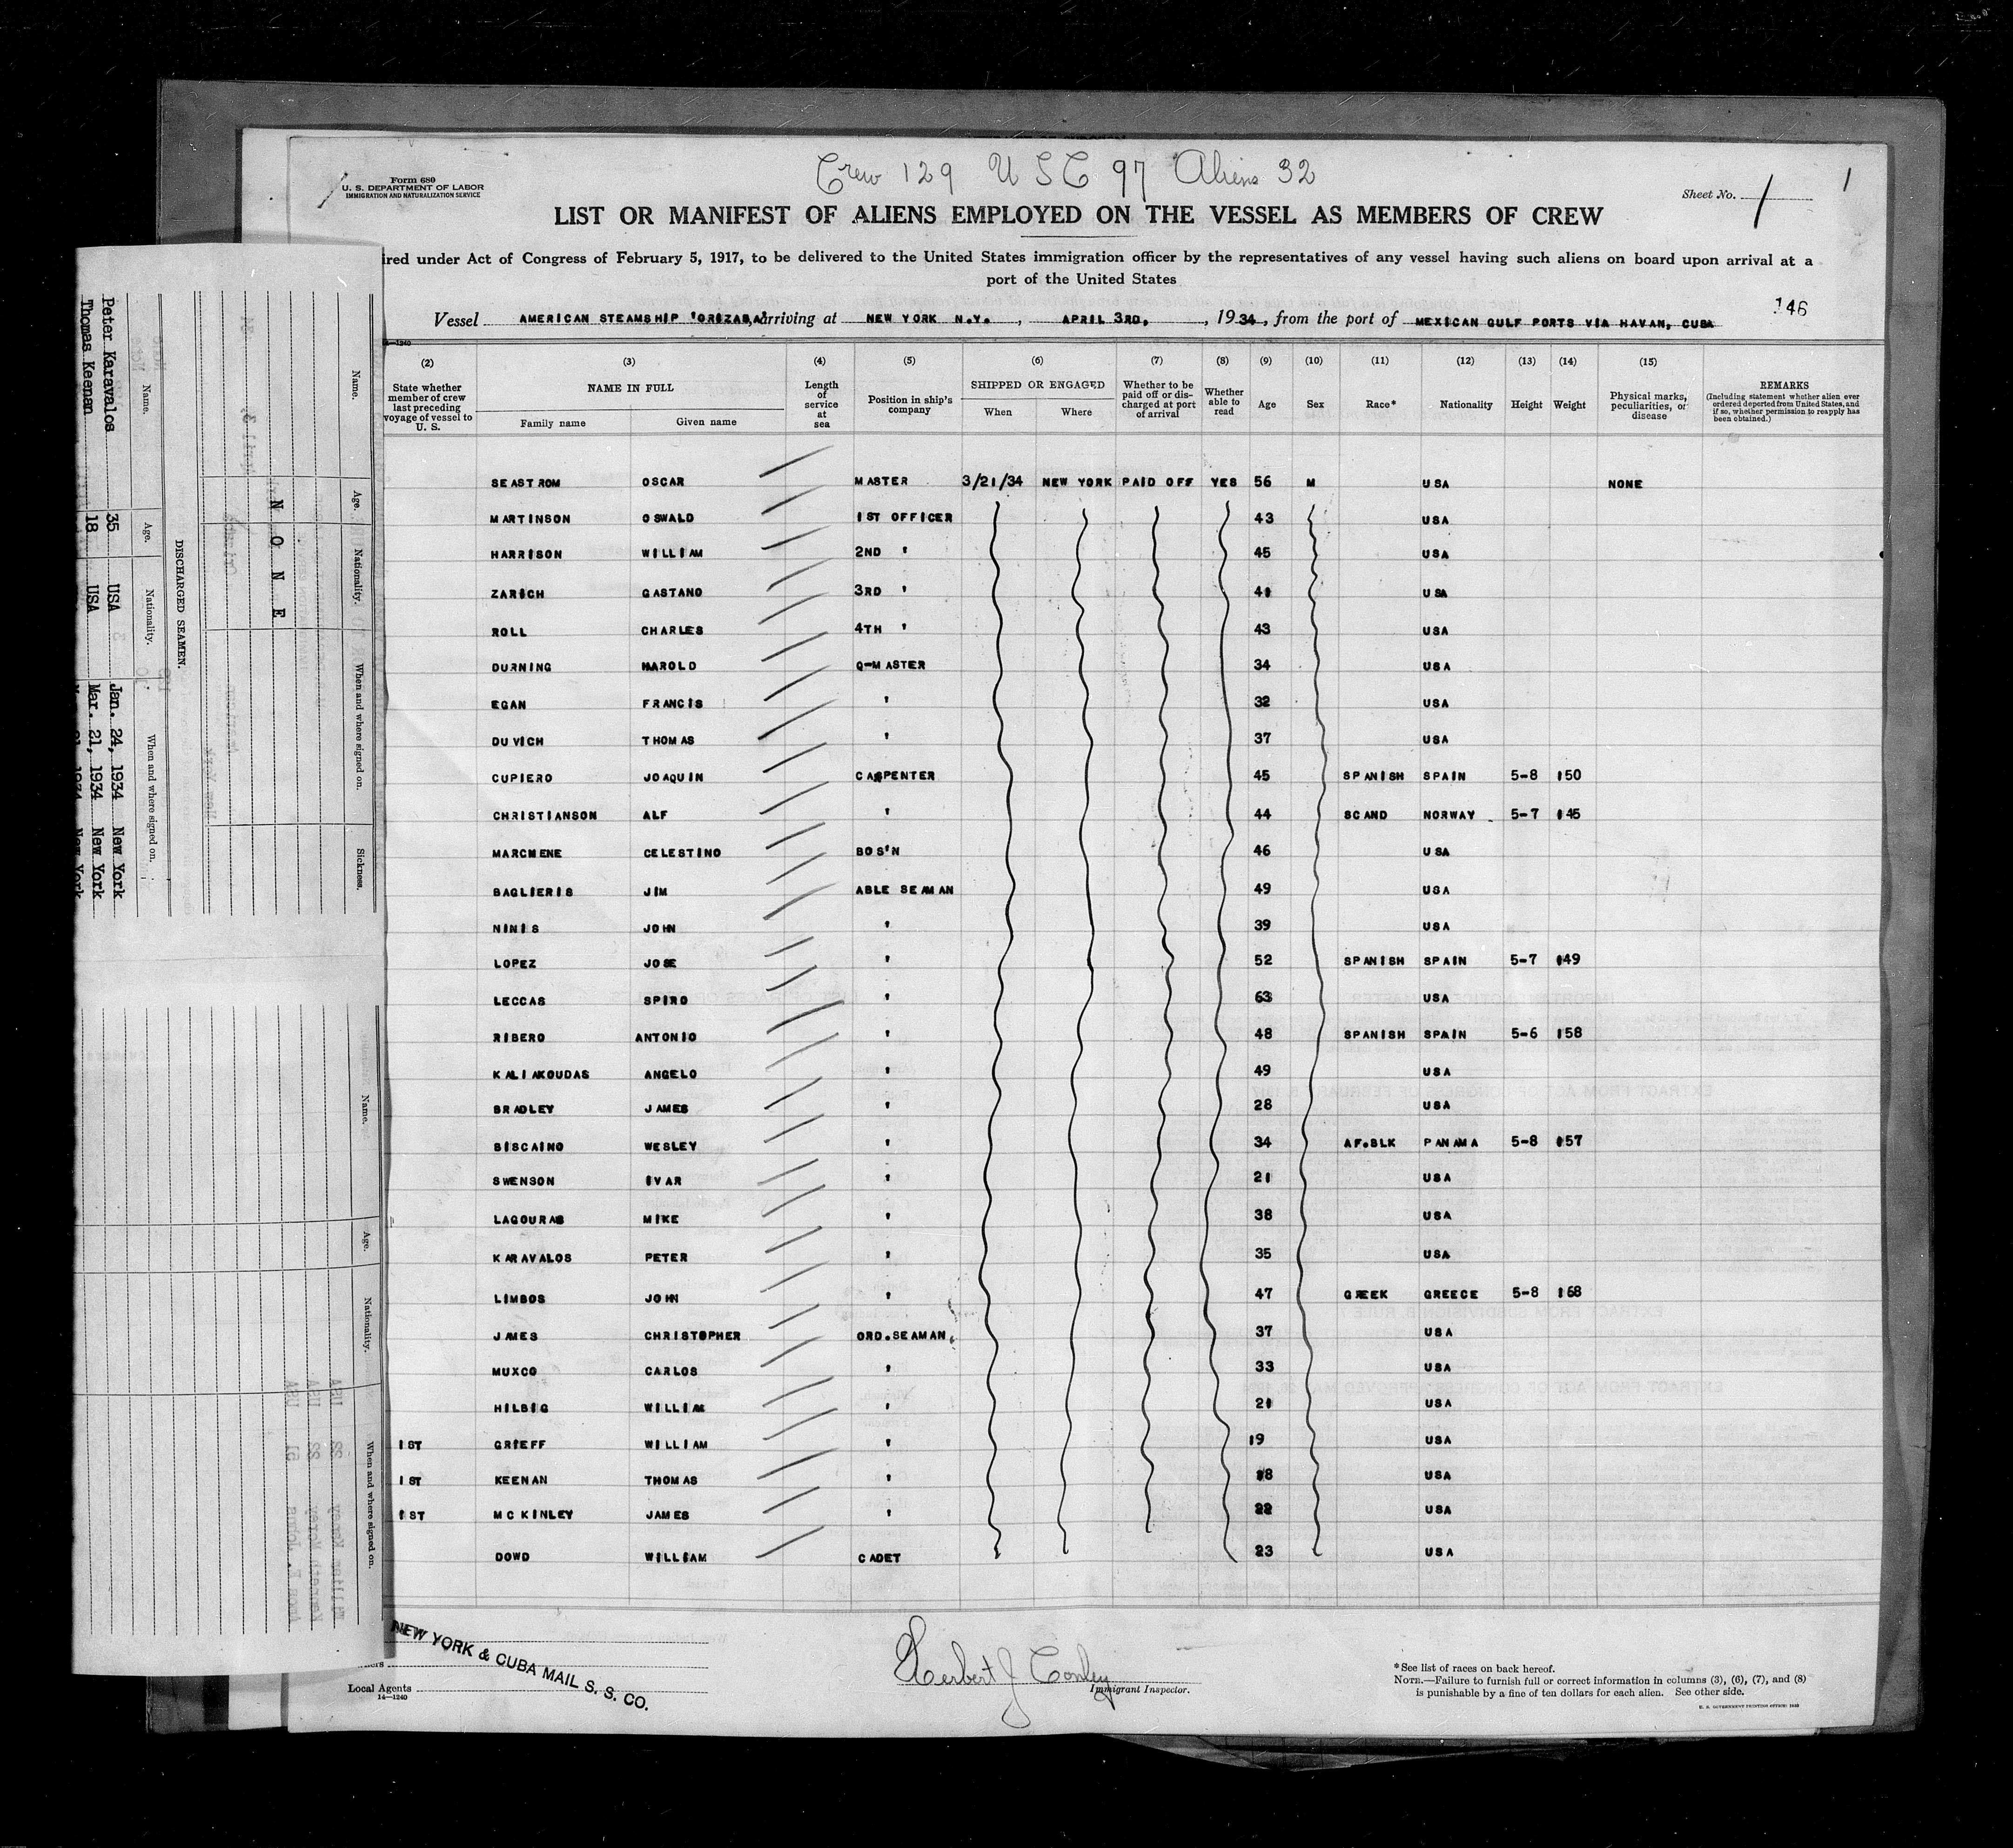 Crew 129 USC 97 Aliens 32
Form 680
U. S. DEPARTMENT OF LABOR
IMMIGRATION AND NATURALIZATION SERVICE
Sheet No. 1
1
LIST OR MANIFEST OF ALIENS EMPLOYED ON THE VESSEL AS MEMBERS OF CREW
ired under Act of Congress of February 5, 1917, to be delivered to the United States immigration officer by the representatives of any vessel having such aliens on board upon arrival at a
port of the United States
146
Vessel AMERICAN STEAMSHIP 'ORIZABA', arriving at NEW YORK N.Y. , APRIL 3RD, , 1934, from the port of MEXICAN GULF PORTS VIA HAVAN, CUBA
14—1240
(2) (3) (4) (5) (6) (7) (8) (9) (10) (11) (12) (13) (14) (15)
State whether member of crew last preceding voyage of vessel to U. S. NAME IN FULL Family name Given name Length of service at sea Position in ship's company SHIPPED OR ENGAGED When Where Whether to be paid off or discharged at port of arrival Whether able to read Age Sex Race* Nationality Height Weight Physical marks, peculiarities, or disease REMARKS (Including statement whether alien ever ordered deported from United States, and if so, whether permission to reapply has been obtained.)
SEASTROM OSCAR MASTER 3/21/34 NEW YORK PAID OFF YES 56 M USA NONE
MARTINSON OSWALD 1ST OFFICER 43 USA
HARRISON WILLIAM 2ND ' 45 USA
ZARICH GASTANO 3RD ' 41 USA
ROLL CHARLES 4TH ' 43 USA
DURNING HAROLD Q-MASTER 34 USA
EGAN FRANCIS ' 32 USA
DUVICH THOMAS ' 37 USA
CUPIERO JOAQUIN CARPENTER 45 SPANISH SPAIN 5-8 150
CHRISTIANSON ALF ' 44 SCAND NORWAY 5-7 145
MARCMENE CELESTINO BOS'N 46 USA
BAGLIERIS JIM ABLE SEAMAN 49 USA
NINIS JOHN ' 39 USA
LOPEZ JOSE ' 52 SPANISH SPAIN 5-7 149
LECCAS SPIRO ' 63 USA
RIBERO ANTONIO ' 48 SPANISH SPAIN 5-6 158
KALIAKOUDAS ANGELO ' 49 USA
BRADLEY JAMES ' 28 USA
BISCAINO WESLEY ' 34 AF.BLK PANAMA 5-8 157
SWENSON IVAR ' 21 USA
LAGOURAS MIKE ' 38 USA
KARAVALOS PETER ' 35 USA
LIMBOS JOHN ' 47 GREEK GREECE 5-8 168
JAMES CHRISTOPHER ORD.SEAMAN 37 USA
MUXCO CARLOS ' 33 USA
HILBIG WILLIAM ' 21 USA
1ST GRIEFF WILLIAM ' 19 USA
1ST KEENAN THOMAS ' 18 USA
1ST MC KINLEY JAMES ' 22 USA
DOWD WILLIAM CADET 23 USA
NEW YORK & CUBA MAIL S. S. CO.
Local Agents
14—1240
Herbert J Conley
Immigrant Inspector.
*See list of races on back hereof.
NOTE.—Failure to furnish full or correct information in columns (3), (6), (7), and (8)
is punishable by a fine of ten dollars for each alien. See other side.
U. S. GOVERNMENT PRINTING OFFICE: 1933
Name. Age. Nationality. When and where signed on. Sickness.
NONE
DISCHARGED SEAMEN.
Name. Age. Nationality. When and where signed on.
Peter Karavalos 35 USA Jan. 24, 1934 New York
Thomas Keenan 18 USA Mar. 21, 1934 New York
Name. Age. Nationality. When and where signed on.